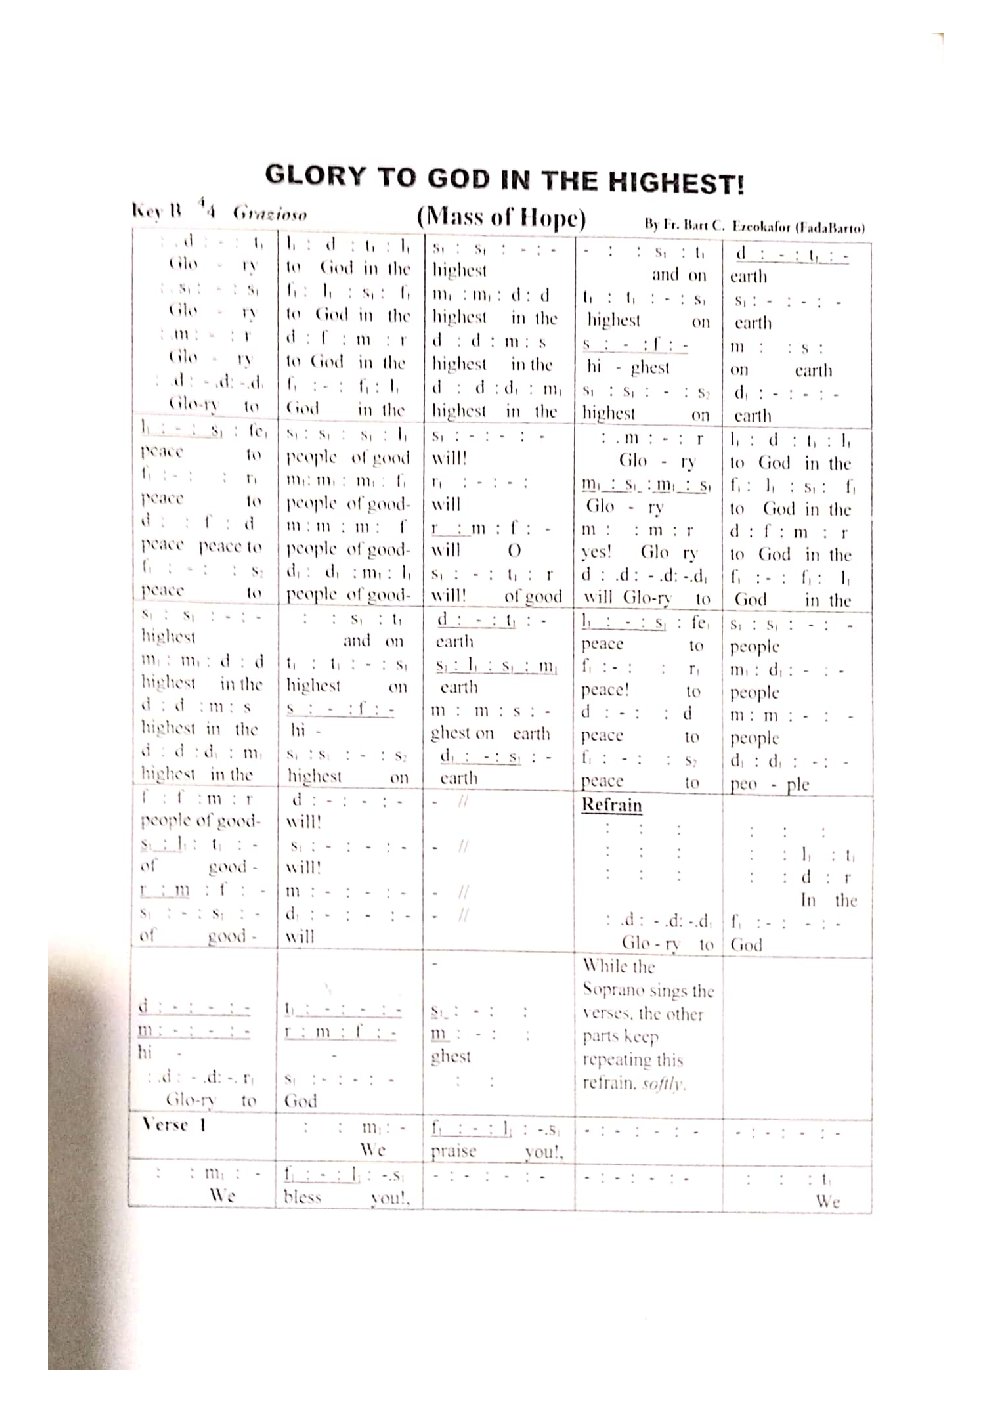 GLORY TO GOD IN THE HIGHEST!
Key B 4/4 Grazioso (Mass of Hope) By Fr. Bart C. Ezeokafor (FadaBarto)
: .d : - : t₁ | l₁ : d : t₁ : l₁ | s₁ : s₁ : - : - | - : : s₁ : t₁ | d : - : t₁ : -
Glo - ry | to God in the | highest | and on | earth
: . s₁ : - : s₁ | f₁ : l₁ : s₁ : f₁ | m₁ : m₁ : d : d | t₁ : t₁ : - : s₁ | s₁ : - : - : -
Glo - ry | to God in the | highest in the | highest on | earth
: .m : - : r | d : f : m : r | d : d : m : s | s : - : f : - | m : : s :
Glo - ry | to God in the | highest in the | hi - ghest | on earth
: .d : - .d: -.d₁ | f₁ : - : f₁ : l₁ | d : d : d₁ : m₁ | s₁ : s₁ : - : s₂ | d₁ : - : - : -
Glo-ry to | God in the | highest in the | highest on | earth
l₁ : - : s₁ : fe₁ | s₁ : s₁ : s₁ : l₁ | s₁ : - : - : - | : . m : - : r | l₁ : d : t₁ : l₁
peace to | people of good | will! | Glo - ry | to God in the
f₁ : - : : r₁ | m₁: m₁ : m₁ : f₁ | r₁ : - : - : | m₁ : s₁ : m₁ : s₁ | f₁ : l₁ : s₁ : f₁
peace to | people of good- | will | Glo - ry | to God in the
d : : f : d | m : m : m : f | r : m : f : - | m : : m : r | d : f : m : r
peace peace to | people of good- | will O | yes! Glo ry | to God in the
f₁ : - : : s₂ | d₁ : d₁ : m₁ : l₁ | s₁ : - : t₁ : r | d : .d : - .d: -.d₁ | f₁ : - : f₁ : l₁
peace to | people of good- | will! of good | will Glo-ry to | God in the
s₁ : s₁ : - : - | : : s₁ : t₁ | d : - : t₁ : - | l₁ : - : s₁ : fe₁ | s₁ : s₁ : - : -
highest | and on | earth | peace to | people
m₁ : m₁ : d : d | t₁ : t₁ : - : s₁ | s₁ : l₁ : s₁ : m₁ | f₁ : - : : r₁ | m₁ : d₁ : - : -
highest in the | highest on | earth | peace! to | people
d : d : m : s | s : - : f : - | m : m : s : - | d : - : : d | m : m : - : -
highest in the | hi - | ghest on earth | peace to | people
d : d : d₁ : m₁ | s₁ : s₁ : - : s₂ | d₁ : - : s₁ : - | f₁ : - : : s₂ | d₁ : d₁ : - : -
highest in the | highest on | earth | peace to | peo - ple
f : f : m : r | d : - : - : - | - // | Refrain
people of good- | will! | : : : | : : :
s₁ : l₁ : t₁ : - | s₁ : - : - : - | - // | : : : | : : l₁ : t₁
of good - | will! | : : : | : : d : r
r : m : f : - | m : - : - : - | - // | In the
s₁ : - : s₁ : - | d₁ : - : - : - | - // | : .d : - .d: -.d₁ | f₁ : - : - : -
of good - | will | Glo - ry to | God
-
While the
Soprano sings the
d : - : - : - | l₁ : - : - : - | s₁ : - : : | verses, the other
m : - : - : - | r : m : f : - | m : - : : | parts keep
hi - | - | ghest | repeating this
: .d : - .d: -. r₁ | s₁ : - : - : - | : : | refrain, softly.
Glo-ry to | God
Verse 1 | : : m₁ : - | f₁ : - : l₁ : -.s₁ | - : - : - : - | - : - : - : -
We | praise you!,
: : m₁ : - | f₁ : - : l₁ : -.s₁ | - : - : - : - | - : - : - : - | : : : t₁
We | bless you!, | We